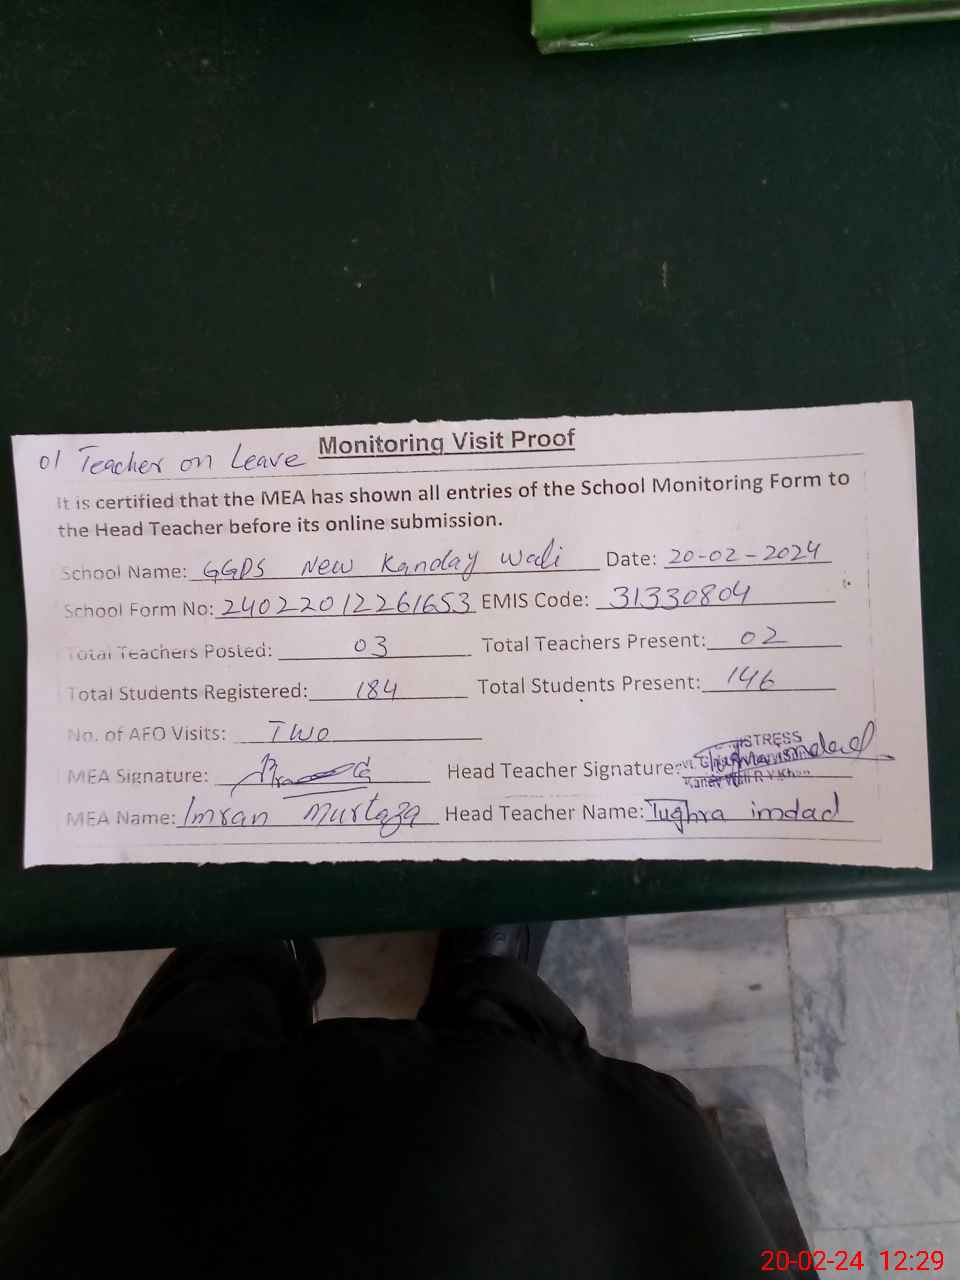 01 Teacher on Leave Monitoring Visit Proof
It is certified that the MEA has shown all entries of the School Monitoring Form to
the Head Teacher before its online submission.
School Name: GGPS New Kanday Wali Date: 20-02-2024
School Form No: 24022012261653 EMIS Code: 31330804
Total Teachers Posted: 03 Total Teachers Present: 02
Total Students Registered: 184 Total Students Present: 146
No. of AEO Visits: Two
MEA Signature: Head Teacher Signature:
MEA Name: Imran Murtaza Head Teacher Name: Tughra imdad
20-02-24 12:29